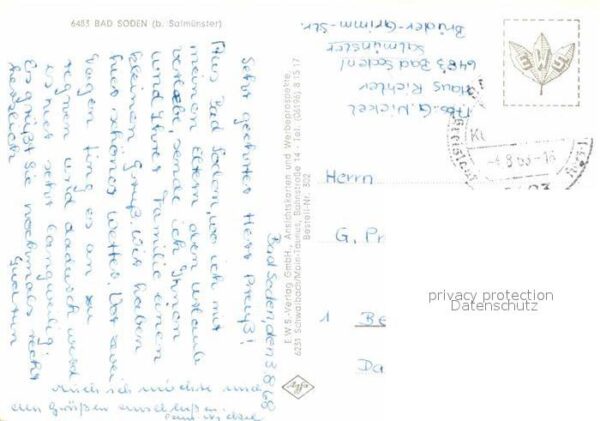 6483 BAD SODEN (b. Salmünster)
Bad Soden, den 3.8.68
Sehr geehrter Herr Preuß!
Aus Bad Soden, wo ich mit
meinen Eltern den Urlaub
verlebe, sende ich Ihnen
und Ihrer Familie einen
kleinen Gruß. Wir haben
hier schönes Wetter. Vor zwei
Tagen fing es an zu
regnen und dadurch wird
es hier sehr langweilig.
Es grüßt Sie nochmals recht
herzlich
Auch ich möchte mich
den Grüßen anschließen.
E W S - Verlag GmbH., Ansichtskarten und Werbeprospekte,
6231 Schwalbach/Main-Taunus, Bahnstraße 14 - Tel. (06196) 8 15 17
Bestell-Nr. 302
Agfa
Abs. G. Nickel
Haus Richter
6483 Bad Soden/
Salmünster
Brüder-Grimm-Str.
EWS
Herrn
G. Pr
1 Be
Da
privacy protection
Datenschutz